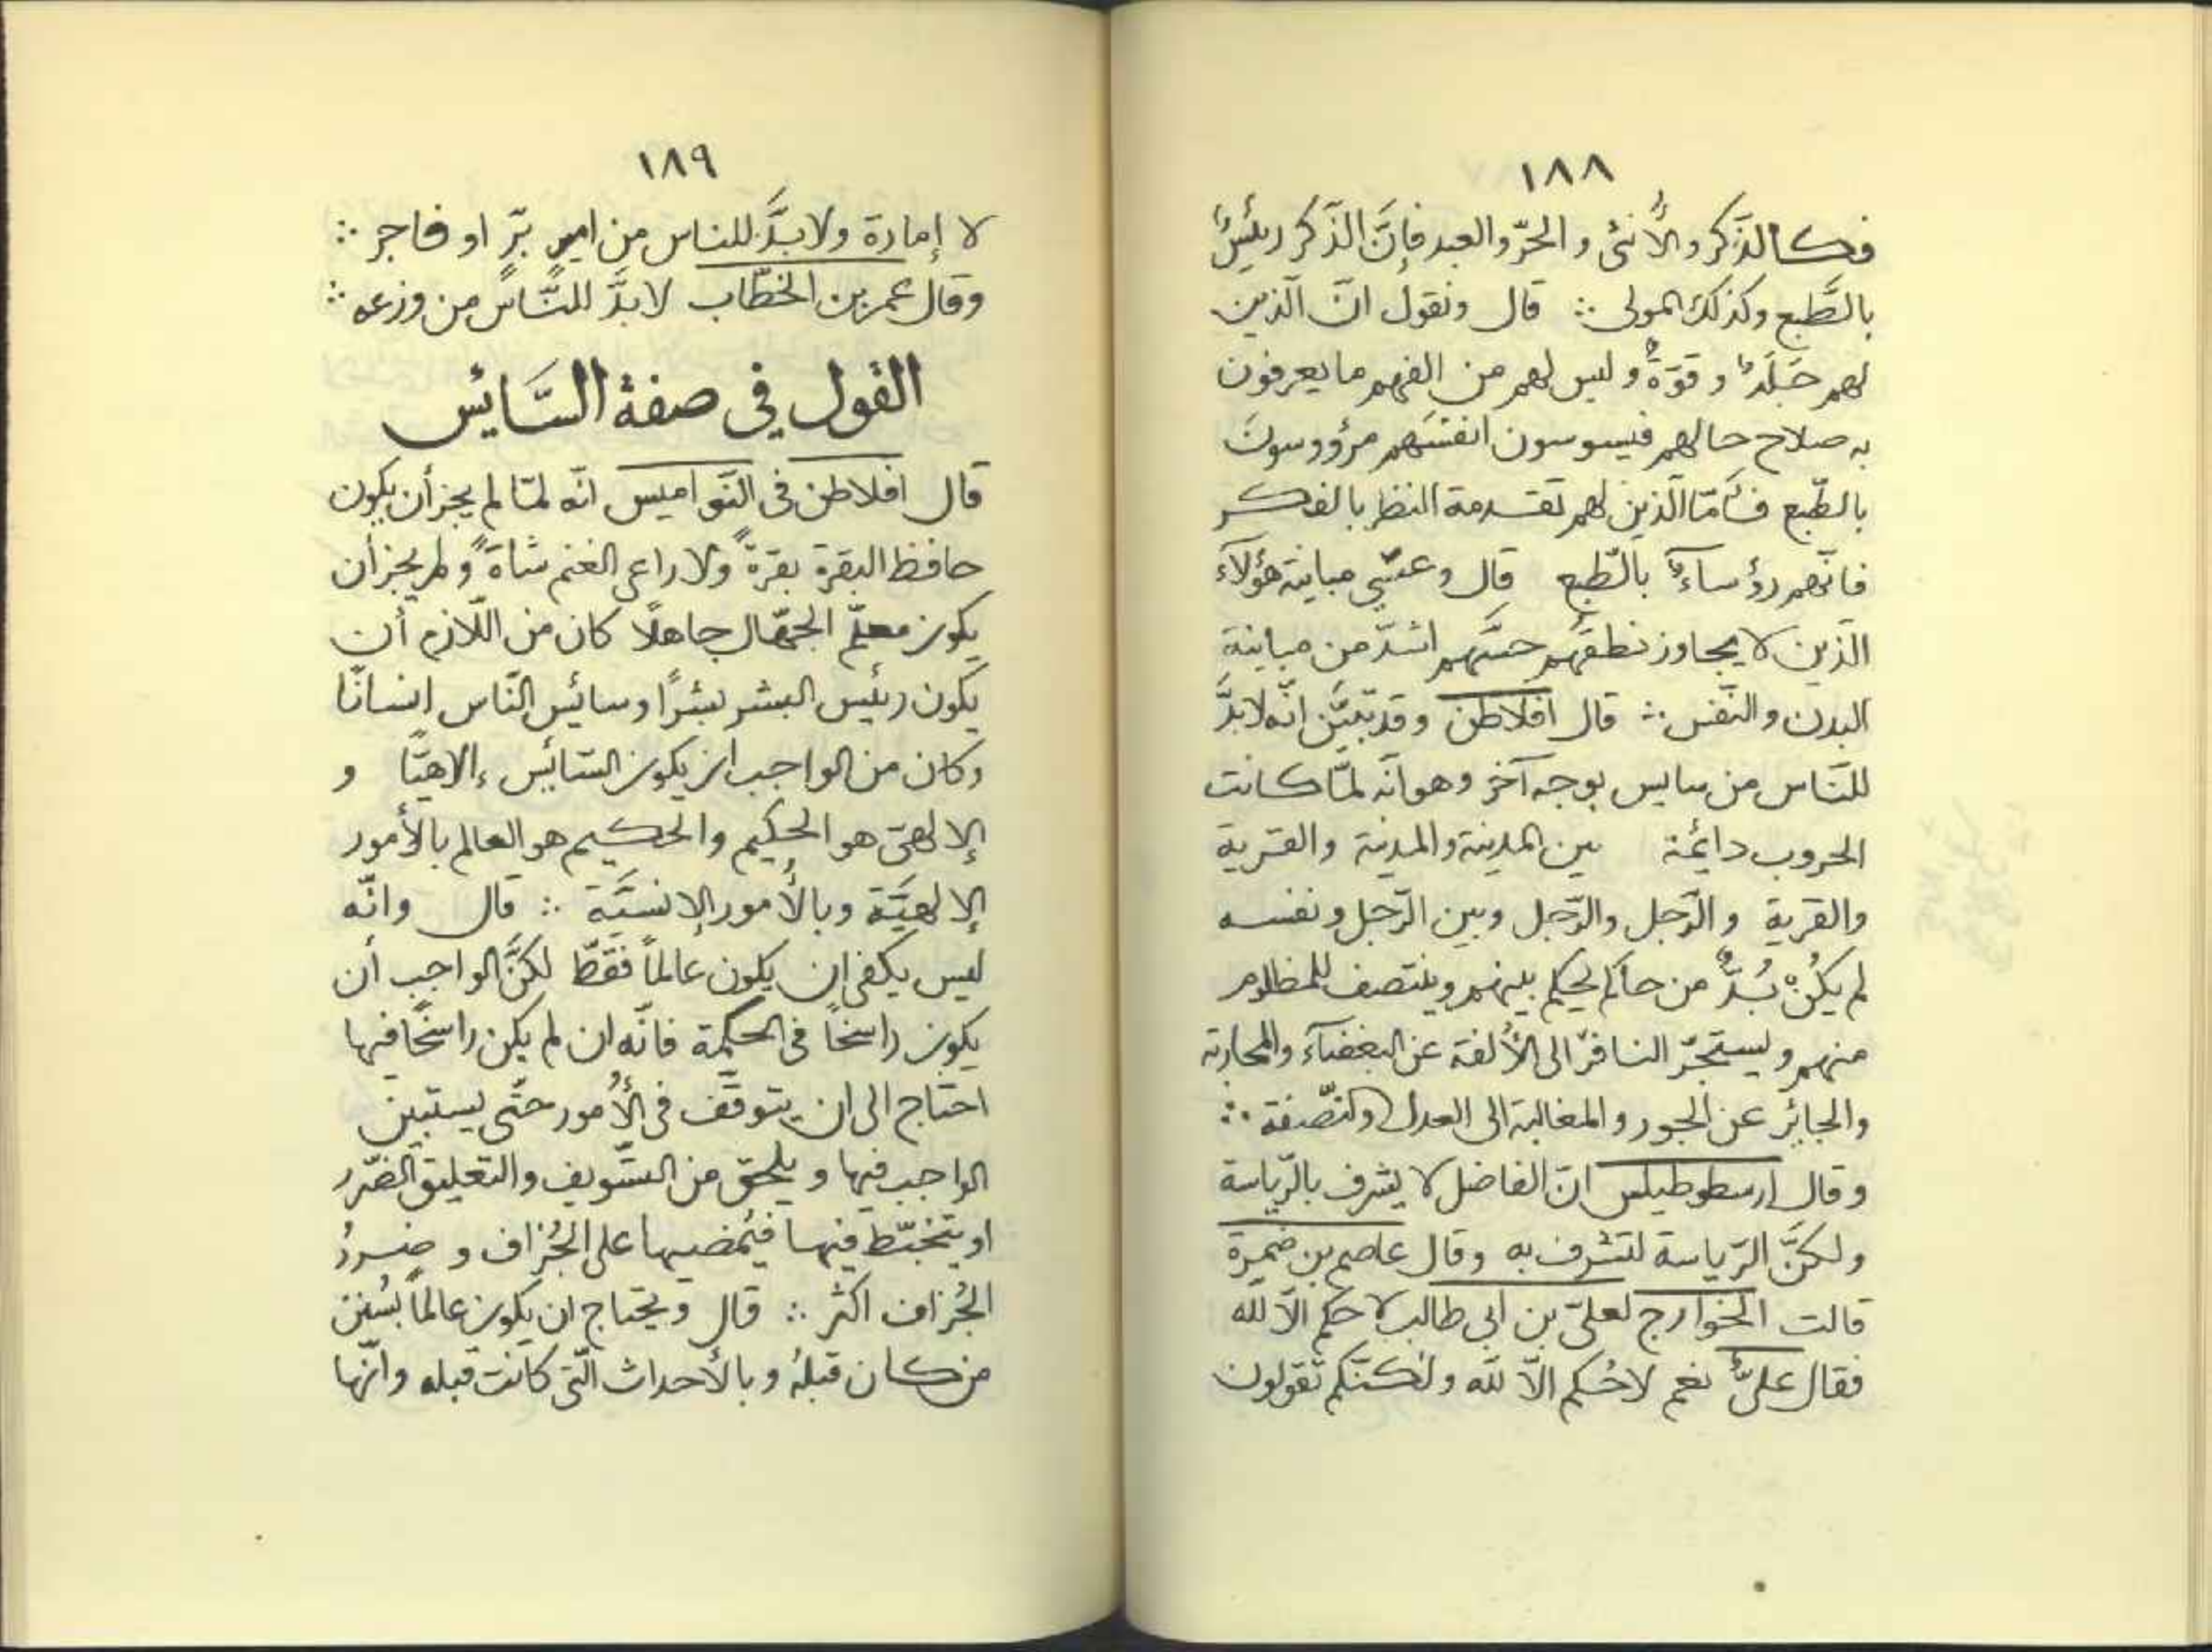 ١٨٨
فكالذَّكر والأُنثى والحرّ والعبد فإِنَّ الذّكر رئيسٌ
بالطَّبع وكذلك المولى ∴ قال ونقول انّ الّذين
لهم جَلَدٌ وقوّةٌ وليس لهم من الفهم ما يعرفون
به صلاح حالهم فيسوسون انفسَهم مرؤوسونَ
بالطّبع فأمّا الّذين لهم تقدمة النظر بالفكر
فانّهم رؤساءٌ بالطّبع قال وعسى مباينة هؤلآء
الّذين لا يجاوز نطقهم حسَّهم اشدّ من مباينة
البدن والنّفس ∴ قال افلاطن وقد تبيَّن انّه لا بدَّ
للنّاس من سايس بوجه آخر وهو انّه لمّا كانت
الحروب دائمة بين المدينة والمدينة والقرية
والقرية والرّجل والرّجل وبين الرّجل ونفسه
لم يكُنْ بُدٌّ من حاكم يحكم بينهم وينتصف للمظلوم
منهم ويستجرّ النافرَ الى الأُلفة عن البغضآء والمحاربة
والجايِر عن الجور والمغالبة الى العدل والنّصفة ∴
وقال ارسطوطيلس انّ الفاضل لا يشرف بالرّياسة
ولكنَّ الرّياسة لتشرف به وقال عاصم بن ضمرة
قالت الخوارج لعليّ بن ابى طالب لا حكم الّا للّه
فقال علىٌّ نعم لا حُكم الّا للّه ولكنّكم تقولون
١٨٩
لا إمارة ولا بدَّ للناس من امير برّ او فاجر ∴
وقال عمر بن الخطّاب لا بدَّ للنّاس من وزعه ∴
القول فى صفة السَّايِس
قال افلاطن فى النّواميس انّه لمّا لم يجز أن يكون
حافظ البقرة بقرةً ولا راعى الغنم شاةً ولم يجز أن
يكون معلّم الجهّال جاهلًا كان من اللّازم أن
يكون رئيس البشر بشرًا وسائس النّاس انسانًا
وكان من الواجب ان يكون السّائس ءالاهيّا و
إلالهىّ هو الحكيم والحكيم هو العالم بالأمور
إلالهيَّة وبالأمور الإنسيَّة ∴ قال وانّه
ليس يكفى ان يكون عالماً فقطّ لكنَّ الواجب أن
يكون راسخاً فى الحكمة فانّه ان لم يكن راسخًا فيها
احتاج الى ان يتوقّف فى الأُمور حتّى يستبين
الواجب فيها ويلحق من التّسويف والتعليق الضّرر
او يتخبّط فيها فيُمضيها على الجُزاف و ضررُ
الجُزاف اكثر ∴ قال ويحتاج ان يكون عالماً بسُنن
من كان قبلهُ وبالأحداث الّتى كانت قبله وانّها